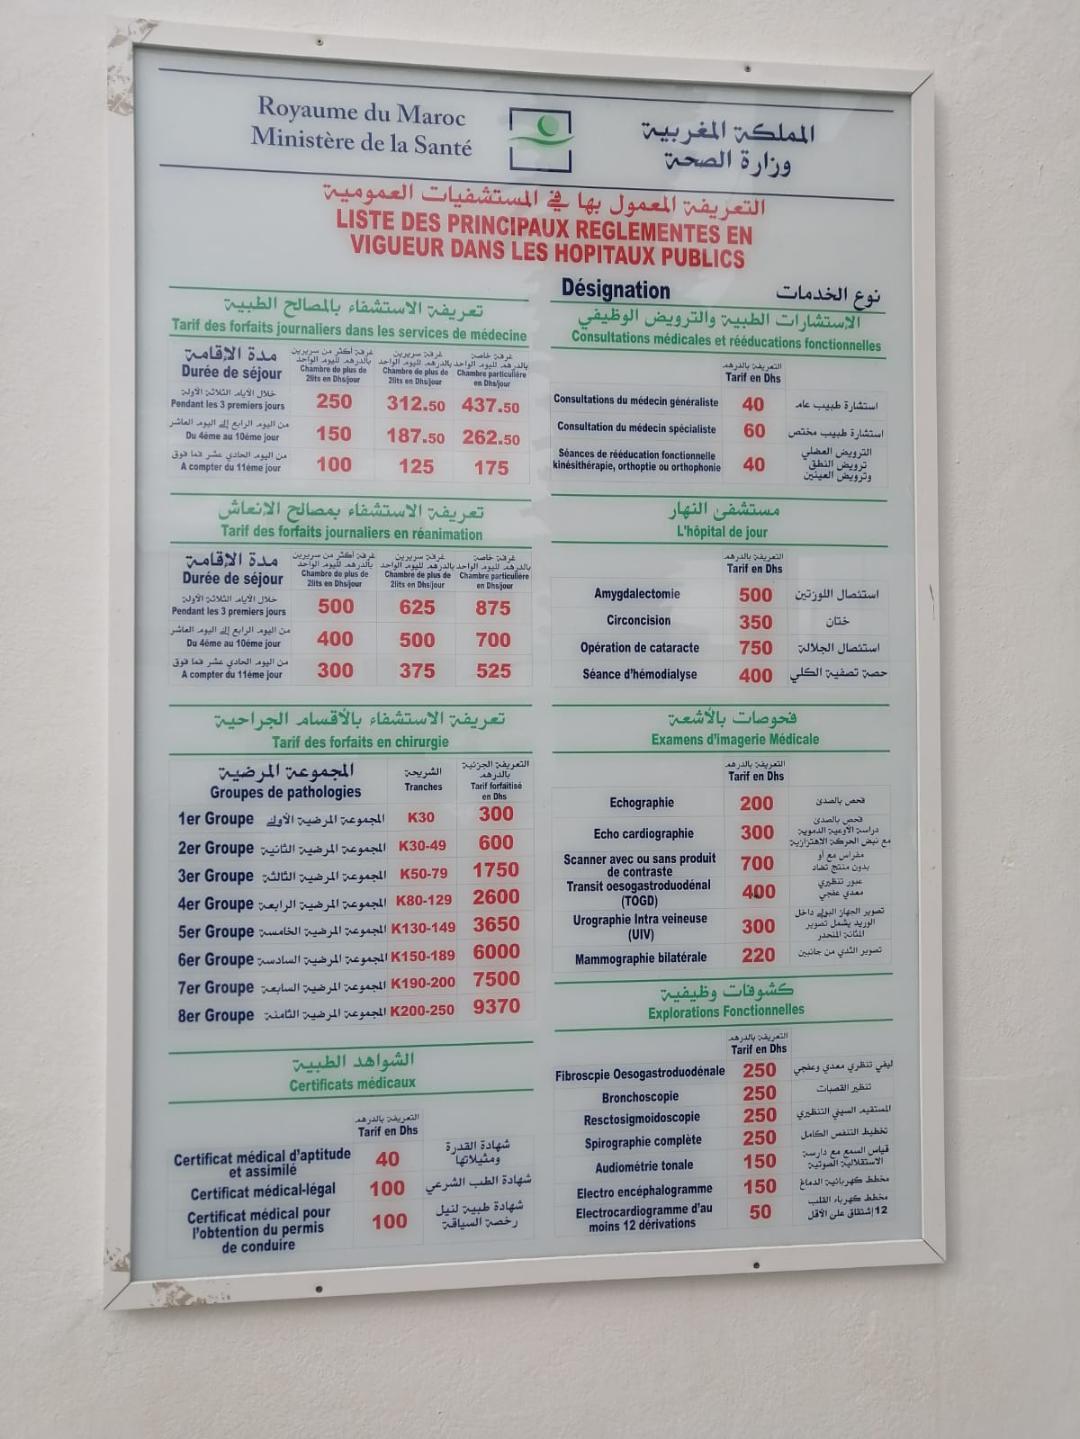 Royaume du Maroc
Ministère de la Santé
المملكة المغربية
وزارة الصحة
التعريفة المعمول بها في المستشفيات العمومية
LISTE DES PRINCIPAUX REGLEMENTES EN
VIGUEUR DANS LES HOPITAUX PUBLICS
تعريفة الاستشفاء بالمصالح الطبية
Tarif des forfaits journaliers dans les services de médecine
مدة الإقامة
Durée de séjour
غرفة أكثر من سريرين
بالدرهم لليوم الواحد
Chambre de plus de
2lits en Dhs/jour
غرفة سريرين
بالدرهم لليوم الواحد
Chambre de plus de
2lits en Dhs/jour
غرفة خاصة
بالدرهم لليوم الواحد
Chambre particulière
en Dhs/jour
خلال الأيام الثلاثة الأولة
Pendant les 3 premiers jours
250 312.50 437.50
من اليوم الرابع إلى اليوم العاشر
Du 4éme au 10éme jour
150 187.50 262.50
من اليوم الحادي عشر فما فوق
A compter du 11éme jour
100 125 175
تعريفة الاستشفاء بمصالح الإنعاش
Tarif des forfaits journaliers en réanimation
مدة الإقامة
Durée de séjour
غرفة أكثر من سريرين
بالدرهم لليوم الواحد
Chambre de plus de
2lits en Dhs/jour
غرفة سريرين
بالدرهم لليوم الواحد
Chambre de plus de
2lits en Dhs/jour
غرفة خاصة
بالدرهم لليوم الواحد
Chambre particulière
en Dhs/jour
خلال الأيام الثلاثة الأولة
Pendant les 3 premiers jours
500 625 875
من اليوم الرابع إلى اليوم العاشر
Du 4éme au 10éme jour
400 500 700
من اليوم الحادي عشر فما فوق
A compter du 11éme jour
300 375 525
تعريفة الاستشفاء بالأقسام الجراحية
Tarif des forfaits en chirurgie
المجموعة المرضية
Groupes de pathologies
الشريحة
Tranches
التعريفة الجزئية
بالدرهم
Tarif forfaitisé
en Dhs
1er Groupe المجموعة المرضية الأولى K30 300
2er Groupe المجموعة المرضية الثانية K30-49 600
3er Groupe المجموعة المرضية الثالثة K50-79 1750
4er Groupe المجموعة المرضية الرابعة K80-129 2600
5er Groupe المجموعة المرضية الخامسة K130-149 3650
6er Groupe المجموعة المرضية السادسة K150-189 6000
7er Groupe المجموعة المرضية السابعة K190-200 7500
8er Groupe المجموعة المرضية الثامنة K200-250 9370
الشواهد الطبية
Certificats médicaux
التعريفة بالدرهم
Tarif en Dhs
Certificat médical d'aptitude
et assimilé
40
شهادة القدرة
ومثيلاتها
Certificat médical-légal 100 شهادة الطب الشرعي
Certificat médical pour
l'obtention du permis
de conduire
100
شهادة طبية لنيل
رخصة السياقة
Désignation
نوع الخدمات
الإستشارات الطبية والترويض الوظيفي
Consultations médicales et rééducations fonctionnelles
التعريفة بالدرهم
Tarif en Dhs
Consultations du médecin généraliste 40 استشارة طبيب عام
Consultation du médecin spécialiste 60 استشارة طبيب مختص
Séances de rééducation fonctionnelle
kinésithérapie, orthoptie ou orthophonie
40
الترويض العضلي
ترويض النطق
وترويض العينين
مستشفى النهار
L'hôpital de jour
التعريفة بالدرهم
Tarif en Dhs
Amygdalectomie 500 استئصال اللوزتين
Circoncision 350 ختان
Opération de cataracte 750 استئصال الجلالة
Séance d'hémodialyse 400 حصة تصفية الكلي
فحوصات بالأشعة
Examens d'imagerie Médicale
التعريفة بالدرهم
Tarif en Dhs
Echographie 200 فحص بالصدى
Echo cardiographie 300
فحص بالصدى
دراسة الأوعية الدموية
مع نبض الحركة الاهتزازية
Scanner avec ou sans produit
de contraste
700
مفراس مع أو
بدون منتج تضاد
Transit oesogastroduodénal
(TOGD)
400
عبور تنظيري
معدي عفجي
Urographie Intra veineuse
(UIV)
300
تصوير الجهاز البولي داخل
الوريد يشمل تصوير
المثانة المنحدر
Mammographie bilatérale 220 تصوير الثدي من جانبين
كشوفات وظيفية
Explorations Fonctionnelles
التعريفة بالدرهم
Tarif en Dhs
Fibroscpie Oesogastroduodénale 250 ليفي تنظري معدي وعفجي
Bronchoscopie 250 تنظير القصبات
Resctosigmoidoscopie 250 المستقيم السيني التنظيري
Spirographie complète 250 تخطيط التنفس الكامل
Audiométrie tonale 150
قياس السمع مع دارسة
الاستقلالية الصوتية
Electro encéphalogramme 150 مخطط كهربائية الدماغ
Electrocardiogramme d'au
moins 12 dérivations
50
مخطط كهرباء القلب
12 إشتقاق على الأقل